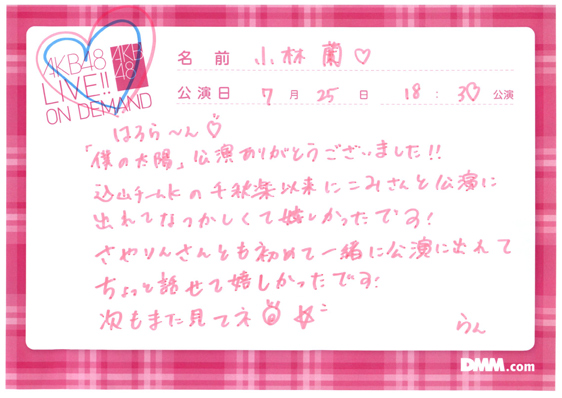 AKB48
LIVE!!
ON DEMAND
AKB
48
名前 小林蘭♡
公演日 7月25日 18:30公演
はろら〜ん♡
「僕の太陽」公演ありがとうございました!!
込山チームKの千秋楽以来にこみさんと公演に
出れてなつかしくて嬉しかったです!
さやりんさんとも初めて一緒に公演に出れて
ちょっと話せて嬉しかったです!
次もまた見てネ
らん
DMM.com